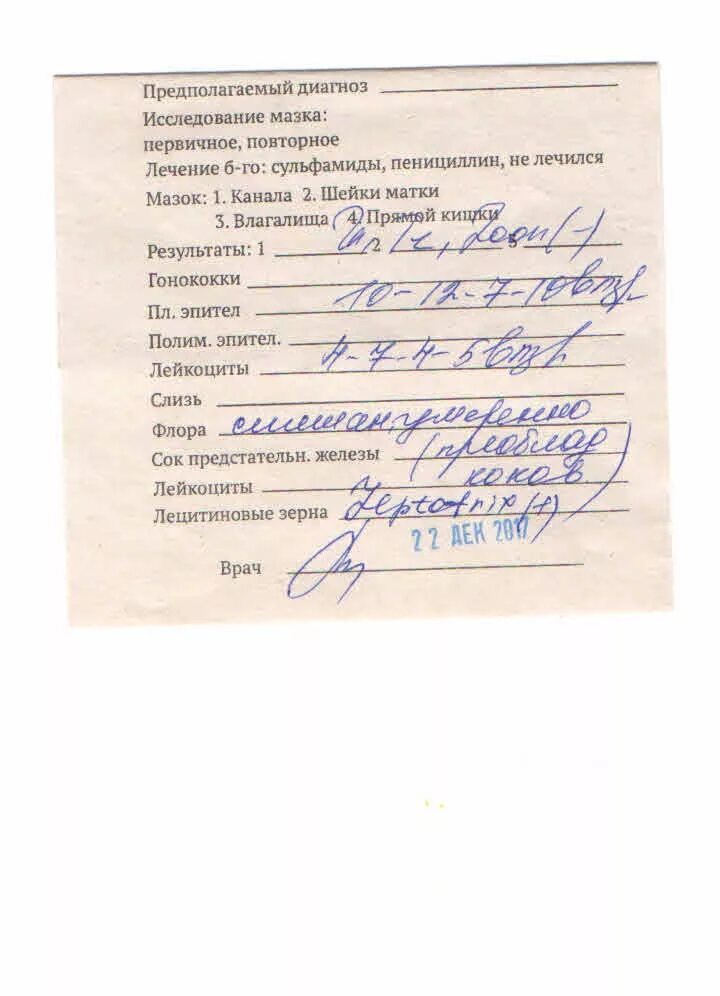 Предполагаемый диагноз
Исследование мазка:
первичное, повторное
Лечение б-го: сульфамиды, пенициллин, не лечился
Мазок: 1. Канала 2. Шейки матки
3. Влагалища 4. Прямой кишки
Результаты: 1 2 3 (-)
Гонококки
Пл. эпител 10-12-7-10 в п/з
Полим. эпител.
Лейкоциты 4-7-4-5 в п/з
Слизь
Флора смешан, умеренно
Сок предстательн. железы (преоблад
Лейкоциты коков)
Лецитиновые зерна Leptotrix (+)
22 ДЕК 2017
Врач